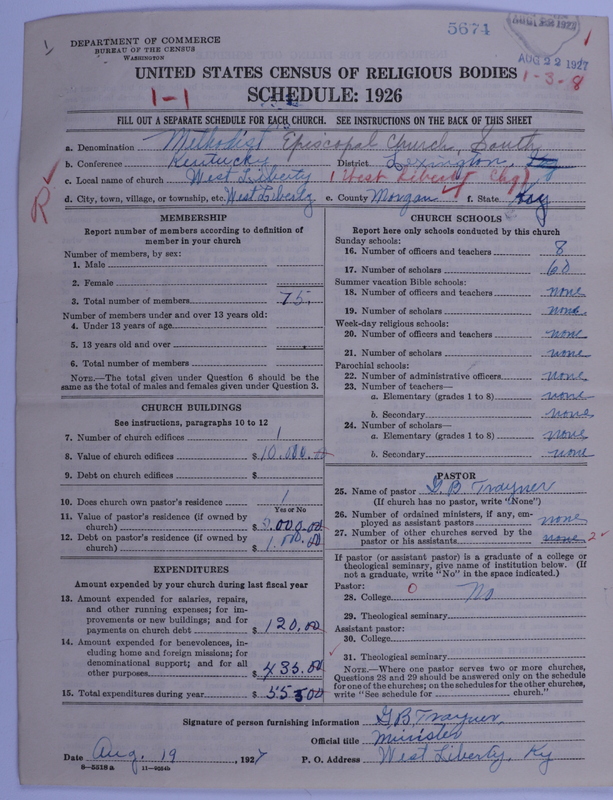 5674
AUG 22 1927
AUG 22 1927
DEPARTMENT OF COMMERCE
BUREAU OF THE CENSUS
WASHINGTON
UNITED STATES CENSUS OF RELIGIOUS BODIES
1-3-8
1-1 SCHEDULE: 1926
FILL OUT A SEPARATE SCHEDULE FOR EACH CHURCH. SEE INSTRUCTIONS ON THE BACK OF THIS SHEET
a. Denomination Methodist Episcopal Church, South
b. Conference Kentucky District Lexington,
c. Local name of church West Liberty (West Liberty Chg)
d. City, town, village, or township, etc. West Liberty e. County Morgan f. State Ky
R
MEMBERSHIP
Report number of members according to definition of
member in your church
Number of members, by sex:
1. Male
2. Female
3. Total number of members 75
Number of members under and over 13 years old:
4. Under 13 years of age
5. 13 years old and over
6. Total number of members
NOTE.—The total given under Question 6 should be the
same as the total of males and females given under Question 3.
CHURCH BUILDINGS
See instructions, paragraphs 10 to 12
7. Number of church edifices 1
8. Value of church edifices $ 10,000.00
9. Debt on church edifices $
10. Does church own pastor's residence 1
Yes or No
11. Value of pastor's residence (if owned by
church) $ 3,000.00
12. Debt on pastor's residence (if owned by
church) $ 1,000.00
EXPENDITURES
Amount expended by your church during last fiscal year
13. Amount expended for salaries, repairs,
and other running expenses; for im-
provements or new buildings; and for
payments on church debt $ 120.00
14. Amount expended for benevolences, in-
cluding home and foreign missions; for
denominational support; and for all
other purposes $ 435.00
15. Total expenditures during year $ 555 00
CHURCH SCHOOLS
Report here only schools conducted by this church
Sunday schools:
16. Number of officers and teachers 8
17. Number of scholars 60
Summer vacation Bible schools:
18. Number of officers and teachers none
19. Number of scholars none
Week-day religious schools:
20. Number of officers and teachers none
21. Number of scholars none
Parochial schools:
22. Number of administrative officers none
23. Number of teachers—
a. Elementary (grades 1 to 8) none
b. Secondary none
24. Number of scholars—
a. Elementary (grades 1 to 8) none
b. Secondary none
PASTOR
25. Name of pastor G B Trayner
(If church has no pastor, write "None")
26. Number of ordained ministers, if any, em-
ployed as assistant pastors none
27. Number of other churches served by the
pastor or his assistants none 2
If pastor (or assistant pastor) is a graduate of a college or
theological seminary, give name of institution below. (If
not a graduate, write "No" in the space indicated.)
Pastor:
28. College 0 No
29. Theological seminary
Assistant pastor:
30. College
31. Theological seminary
NOTE.—Where one pastor serves two or more churches,
Questions 28 and 29 should be answered only on the schedule
for one of the churches; on the schedules for the other churches,
write "See schedule for church."
Signature of person furnishing information G B Trayner
Official title Minister
Date Aug. 19, 1927 P. O. Address West Liberty, Ky
8—5218 a 11—9054b